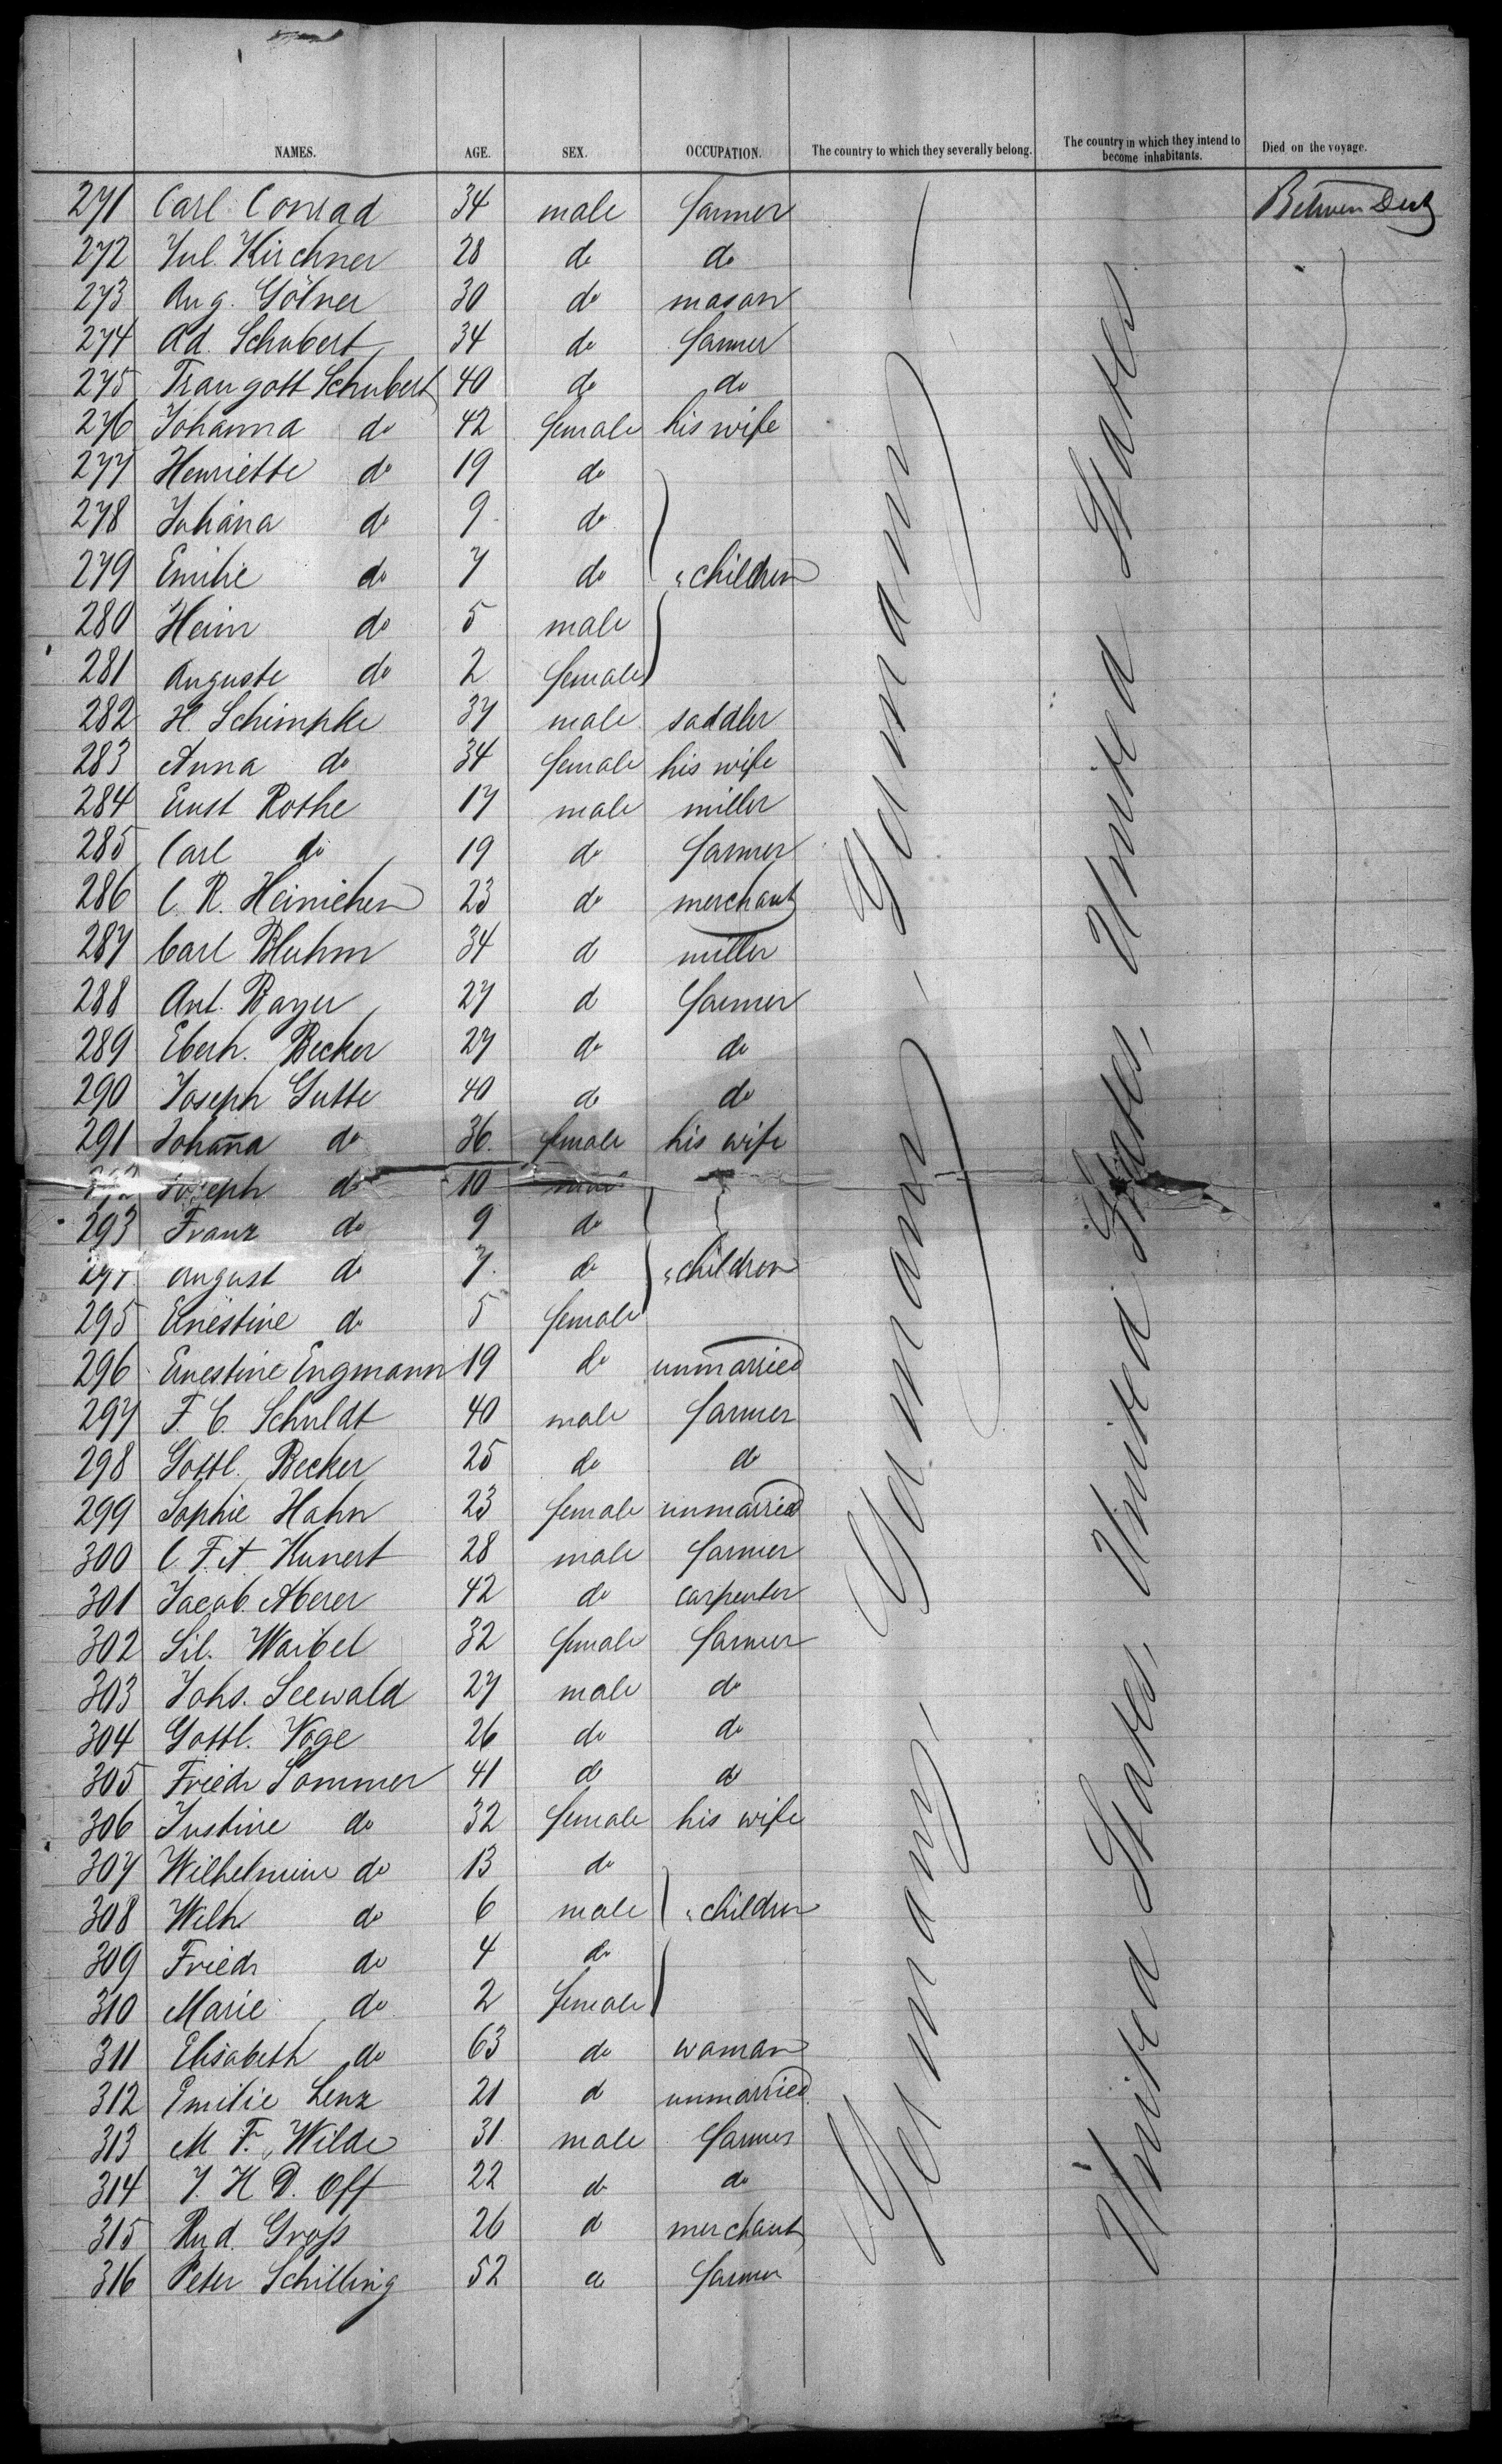 NAMES. AGE. SEX. OCCUPATION. The country to which they severally belong. The country in which they intend to become inhabitants. Died on the voyage.
271 Carl Conrad 34 male farmer Between Deck
272 Jul. Kirchner 28 do do
273 Aug. Gölner 30 do mason
274 Ad. Schubert 34 do farmer
275 Traugott Schubert 40 do do
276 Johanna do 42 female his wife
277 Henriette do 19 do
278 Johána do 9 do
279 Emilie do 7 do children
280 Heinr do 5 male
281 Auguste do 2 female
282 H. Schimpke 37 male saddler
283 Anna do 34 female his wife
284 Ernst Rothe 17 male miller
285 Carl do 19 do farmer
286 C. R. Heinichen 23 do merchant
287 Carl Bluhm 34 do miller
288 Ant. Bayer 27 do farmer
289 Eberh. Becker 27 do do
290 Joseph Gutte 40 do do
291 Johan̄a do 36 female his wife
292 Joseph do 10 male
293 Franz do 9 do
294 August do 7 do children
295 Ernestine do 5 female
296 Ernestine Engmann 19 do unmarried
297 F. C. Schuldt 40 male farmer
298 Gottl. Becker 25 do do
299 Sophie Hahn 23 female unmarried
300 C. F. A. Kunert 28 male farmer
301 Jacob Aberer 42 do carpenter
302 Sil. Waibel 32 female farmer
303 Johs. Seewald 27 male do
304 Gottl. Voge 26 do do
305 Friedr Sommer 41 do do
306 Justine do 32 female his wife
307 Wilhelmine do 13 do
308 Wilh do 6 male children
309 Friedr do 4 do
310 Marie do 2 female
311 Elisabeth do 63 do woman
312 Emilie Lenz 21 do unmarried
313 M. F. Wilde 31 male farmer
314 J. H. D. Off 22 do do
315 Rud. Groß 26 do merchant
316 Peter Schilling 52 do farmer
Germany, - Germany - Germany -
United States, United States, United States